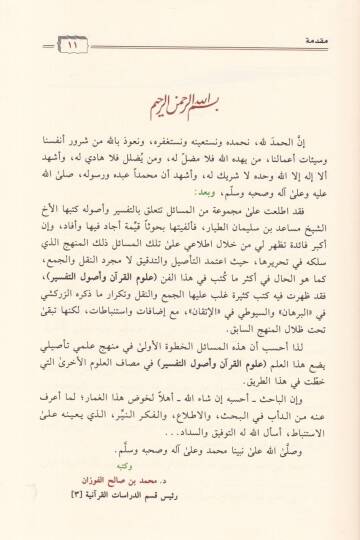 مقدمة
١١
بسم الله الرحمن الرحيم
إنَّ الحمدَ لله، نحمده ونستعينه ونستغفره، ونعوذ بالله من شرور أنفسنا
وسيئات أعمالنا، من يهده الله فلا مضلّ له، ومن يُضلل فلا هادي له، وأشهد
ألا إله إلا الله وحده لا شريك له، وأشهد أن محمداً عبده ورسوله، صلى الله
عليه وعلى آله وصحبه وسلّم، وبعد:
فقد اطلعت على مجموعة من المسائل تتعلق بالتفسير وأصوله كتبها الأخ
الشيخ مساعد بن سليمان الطيار، فألفيتها بحوثاً قيِّمة أجاد فيها وأفاد، وإن
أكبر فائدة تظهر لي من خلال اطلاعي على تلك المسائل ذلك المنهج الذي
سلكه في تحريرها، حيث اعتمد التأصيل والتدقيق لا مجرد النقل والجمع،
كما هو الحال في أكثر ما كُتب في هذا الفن (علوم القرآن وأصول التفسير)،
فقد ظهرت فيه كتب كثيرة غلب عليها الجمع والنقل وتكرار ما ذكره الزركشي
في «البرهان» والسيوطي في «الإتقان»، مع إضافات واستنباطات، لكنها تبقى
تحت ظلال المنهج السابق.
لذا أحسب أن هذه المسائل الخطوة الأولى في منهج علمي تأصيلي
يضع هذا العلم (علوم القرآن وأصول التفسير) في مصاف العلوم الأخرى التي
خطّت في هذا الطريق.
وإن الباحث ـ أحسبه إن شاء الله ـ أهلاً لخوض هذا الغمار؛ لما أعرف
عنه من الدأب في البحث، والاطلاع، والفكر النيِّر، الذي يعينه على
الاستنباط، أسأل الله له التوفيق والسداد...
وصلَّى الله على نبينا محمد وعلى آله وصحبه وسلَّم.
وكتبه
د. محمد بن صالح الفوزان
رئيس قسم الدراسات القرآنية [٣]